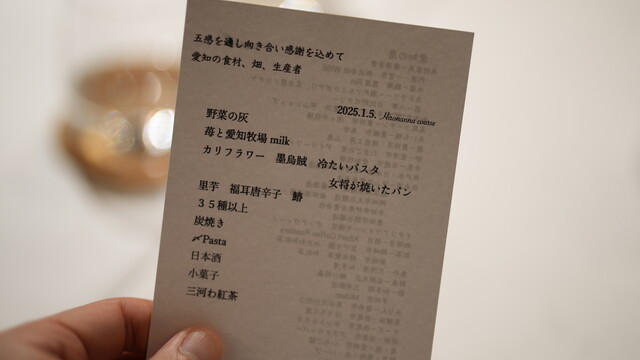 五感を通し向き合い感謝を込めて
愛知の食材、畑、生産者
2025.1.5. course
野菜の灰
苺と愛知牧場 milk
カリフラワー 墨烏賊 冷たいパスタ
女将が焼いたパン
里芋 福耳唐辛子 鰆
35種以上
炭焼き
〆Pasta
日本酒
小菓子
三河わ紅茶